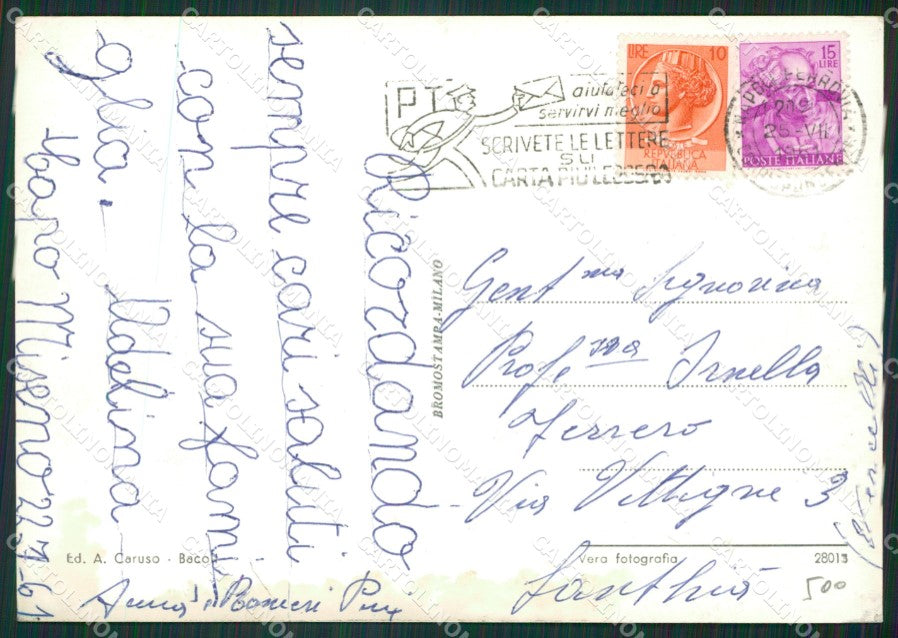 Ricordando
sempre cari saluti
con la sua fami
glia. Adelina
Capo Miseno 22-7-61
PT
aiutateci a
servirvi meglio
SCRIVETE LE LETTERE
SU
CARTA PIÙ LEGGERA
LIRE 10
REPVBBLICA
ITALIANA
15
LIRE
POSTE ITALIANE
NAPOLI FERROVIA
25-VII
BROMOSTAMPA-MILANO
Gent ma Signorina
Prof. ssa Ornella
Ferrero
Via Vittigne 3
Santhià
(Vercelli)
Ed. A. Caruso - Bacoli
Vera fotografia
28013
500
Anna